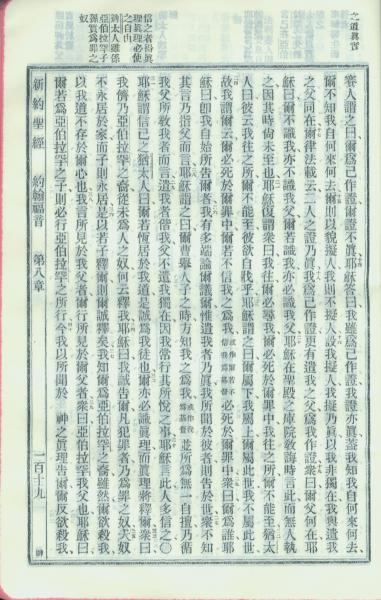 之道眞實
賽人謂之曰爾爲己作證爾證不眞耶穌答曰我雖爲己作證我證亦眞蓋我知我自何來何去
爾不知我自何來何去爾則以貌擬人我則不擬人設我擬人我擬乃眞以我非獨在我與遣我
之父同在爾律法載云二人之證乃眞我爲己作證更有遣我之父爲我作證衆曰爾父何在耶
穌曰爾不識我亦不識我父爾若識我亦必識我父耶穌在聖殿之庫院敎誨時言此而無人執
之因其時尚未至也耶穌復謂衆曰我往爾必尋我爾必死於罪中我往之所爾不能至猶太
人曰彼云我往之所爾不能至彼欲自殺乎耶穌謂之曰爾屬下我屬上爾屬此世我不屬此世
故我謂爾云爾必死於罪中爾若不信我之爲我或作爾若不信我爲基督必死於罪中衆曰爾爲誰耶
穌曰卽我自始所告爾者我有多端論爾議爾惟遣我者乃眞我所聞於彼者則告於世衆不知
其言乃指父而言耶穌謂之曰爾曹舉人子之時方知我之爲我或作我爲基督並所爲無一自擅乃循
我父所敎我者而言遣我者偕我父不遺我獨在因我常行其所悅之事耶穌言此人多信之○
信之者得眞
理眞理必使
之自由
猶太人雖係
亞伯拉罕子
孫實爲罪之
耶穌謂信己之猶太人曰爾若恆居於我道是誠爲我徒也爾亦必識眞理而眞理將釋爾衆曰
我儕乃亞伯拉罕之裔從未爲人之奴何云釋我耶穌曰我誠告爾凡犯罪者乃爲罪之奴夫奴
不永居於家而子則永居是以若子釋爾則爾誠釋矣我知爾爲亞伯拉罕之裔雖然爾欲殺我
以我道不存於爾心也我言所見於我父者爾行所見於爾父者衆曰亞伯拉罕我父也耶穌曰
爾若爲亞伯拉罕之子則必行亞伯拉罕之所行今我以所聞於 神之眞理告爾爾反欲殺我
新約聖經 約翰福音 第八章 一百十九